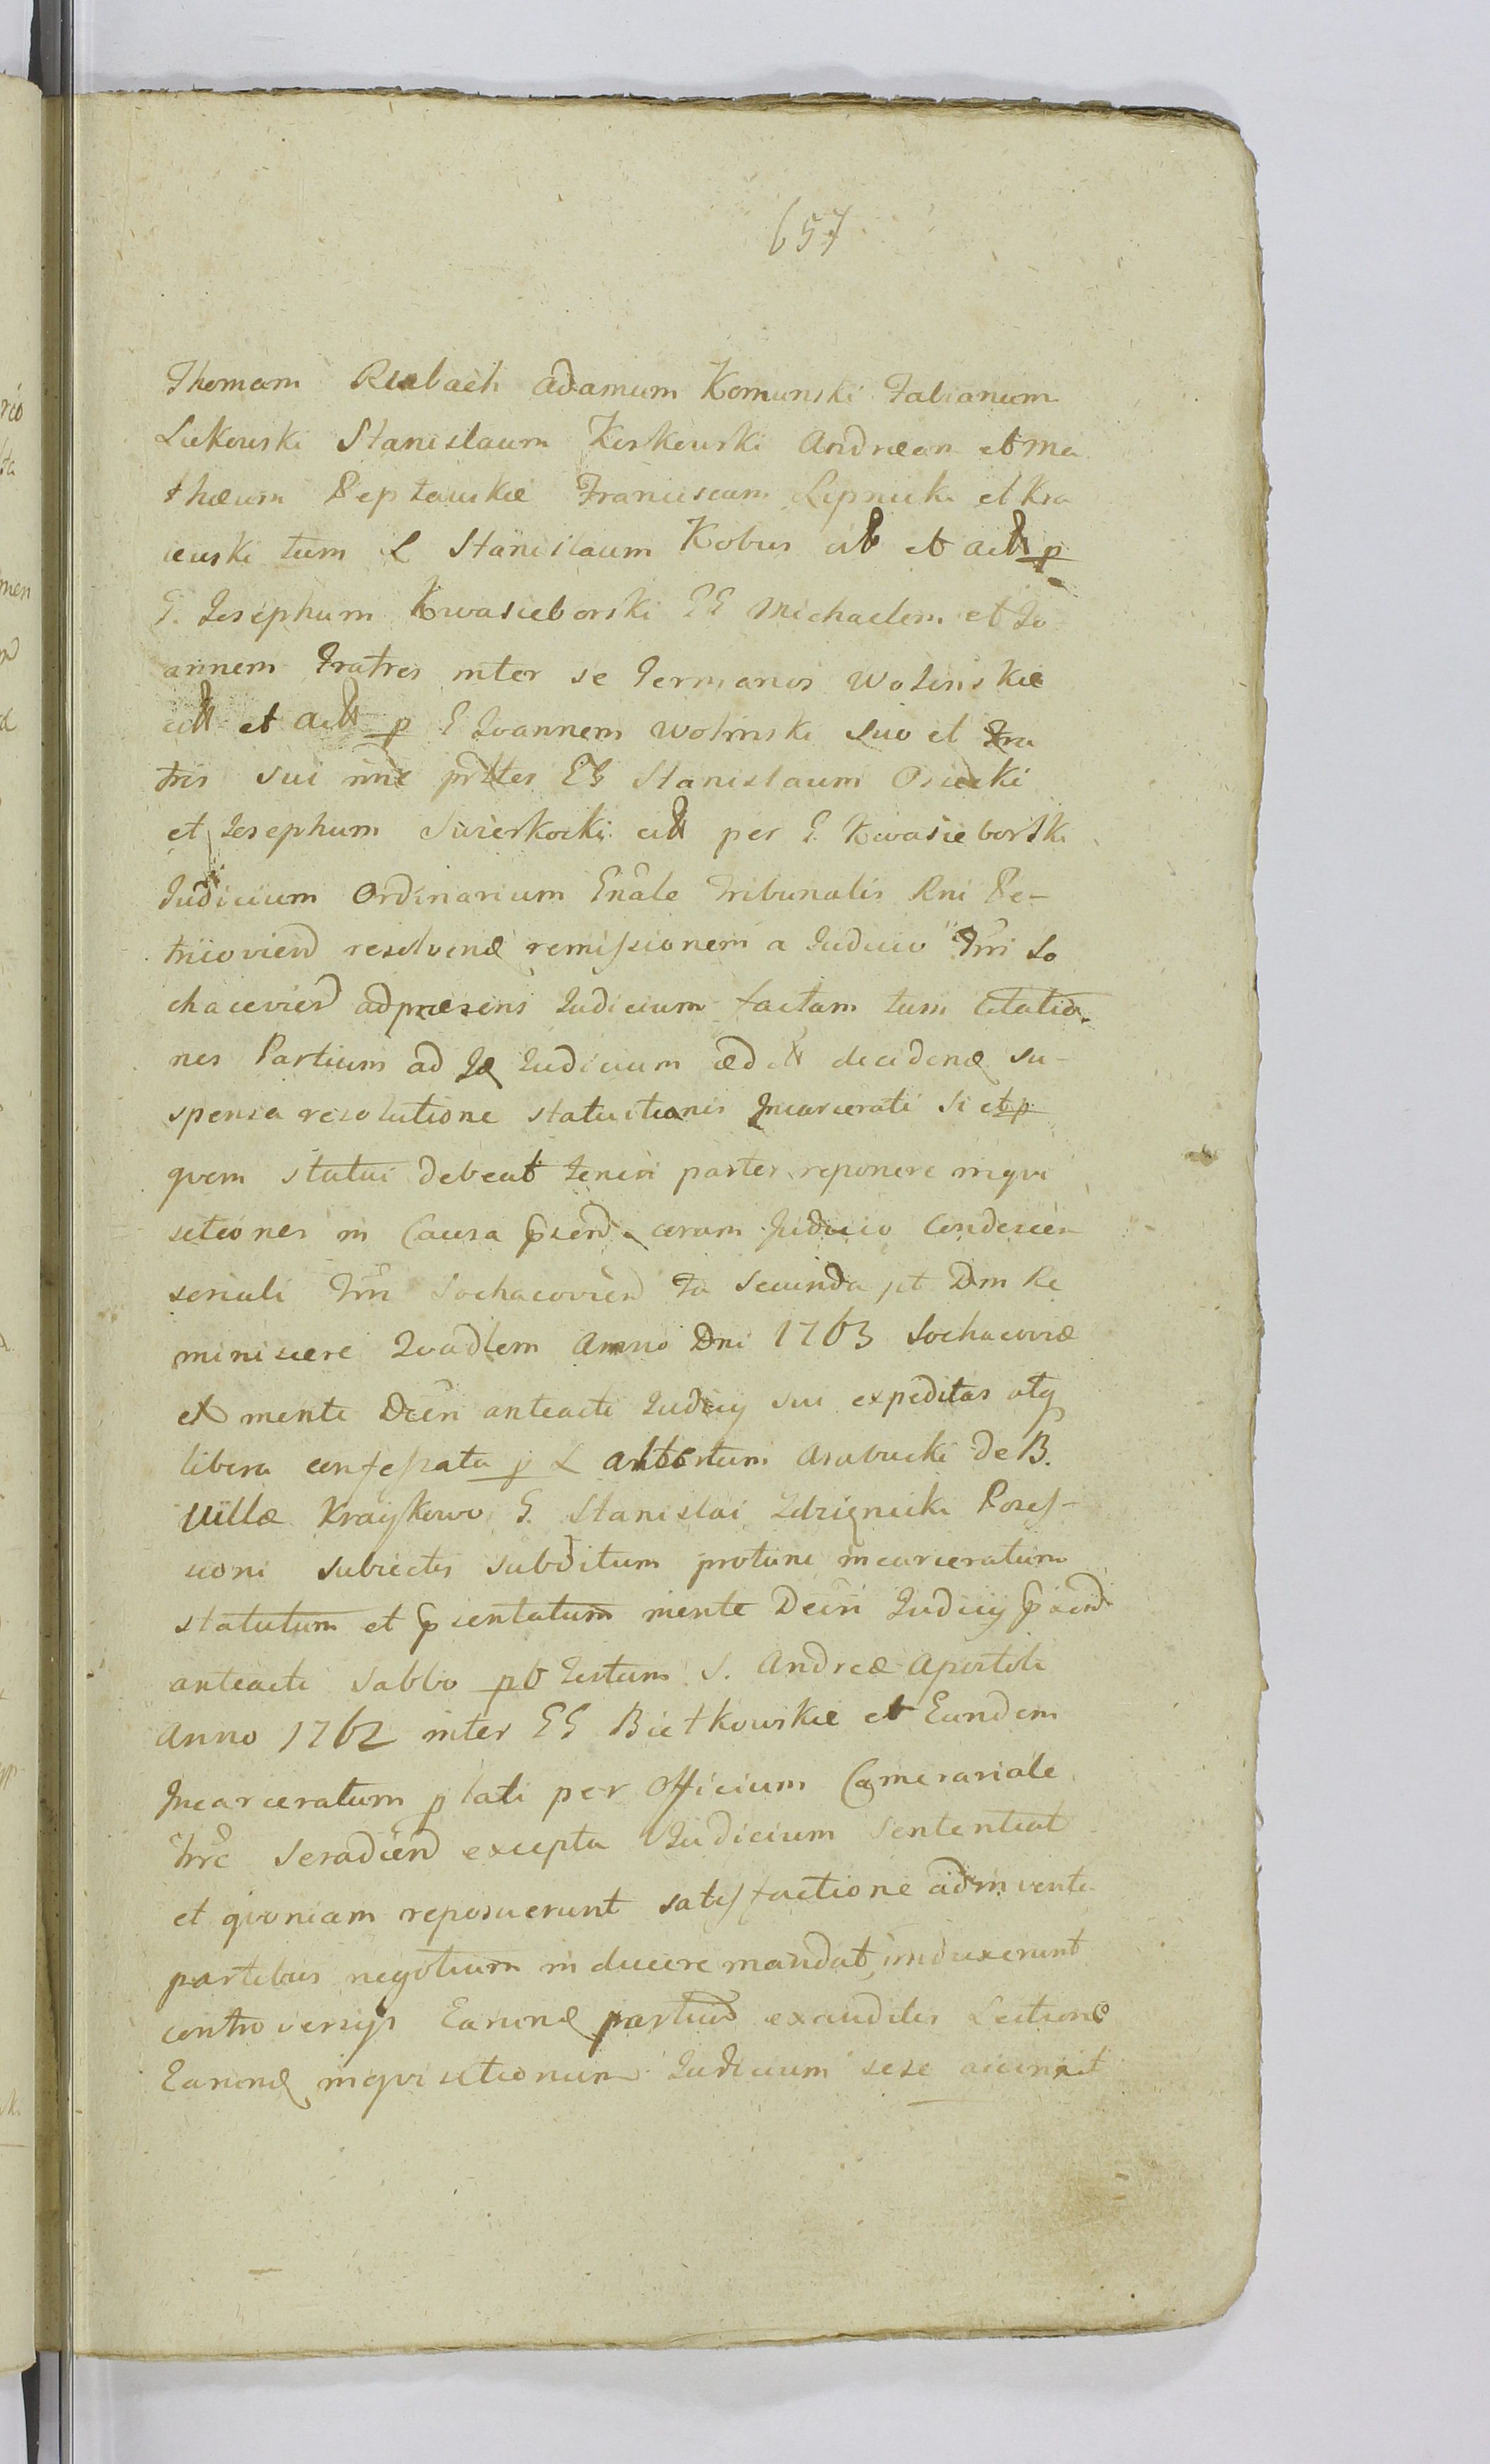 657
Thomam Rebach Adamum Komunski Fabianum
Lukowski Stanislaum Kerkowski Andræam et Ma
thæum Peplawskie Franciscum Lipnicki et Kra
iewski tum L Stanislaum Kobus citt et actt p
G. Josephum Kwasieborski GG Michaelem et Jo
annem Fratres inter se Germanos Wolinskie
citt et actt p G Joannem Wolinski suo et Fra
tris sui nne prttes GG Stanislaum Osiecki
et Josephum Swierkocki citt per G. Kwasieborski
Judicium Ordinarium Gnale Tribunalis Rni Pe-
tricovien resolvend remissionem a Judicio Trri So
chacevien ad præsens Judicium factam tum Citatio
nes Partium ad Judicium decidend su-
spensa resolutione statuitionis Incarcerati si et p
quem statui debeat teneri partes reponere inqvi
sitiones in Causa coram Judicio Condescen
soriali Trri Sochacovien Fa Secunda pt Dm Re
miniscere Qvadlem Anno Dni 1763 Sochacoviæ
et mente Decri anteacti Judicij sui expeditas atq
libera confessata p L Arabucki de B.
Villæ G. Stanislai Posses-
sioni subiectis subditum protunc incarceratum
statutum et psentatum mente Decri Judicij psend
anteacti Sabbo pt Festum S. Andreæ Apostoli
Anno 1762 inter GG Bietkowskie et Eundem
Incarceratum p lati per Officium Camerariale
Trre Seradien excepta Judicium Sententiat
et qvoniam reposuerunt satisfactione adinventa
partibus negotium inducere mandat, induxerunt
controversijs Earund partiud exauditis Lectione
Earund inqvisitionum Judicium sese accinxit